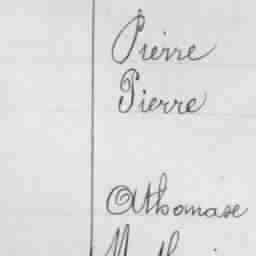 Pierre
Pierre
Athomase